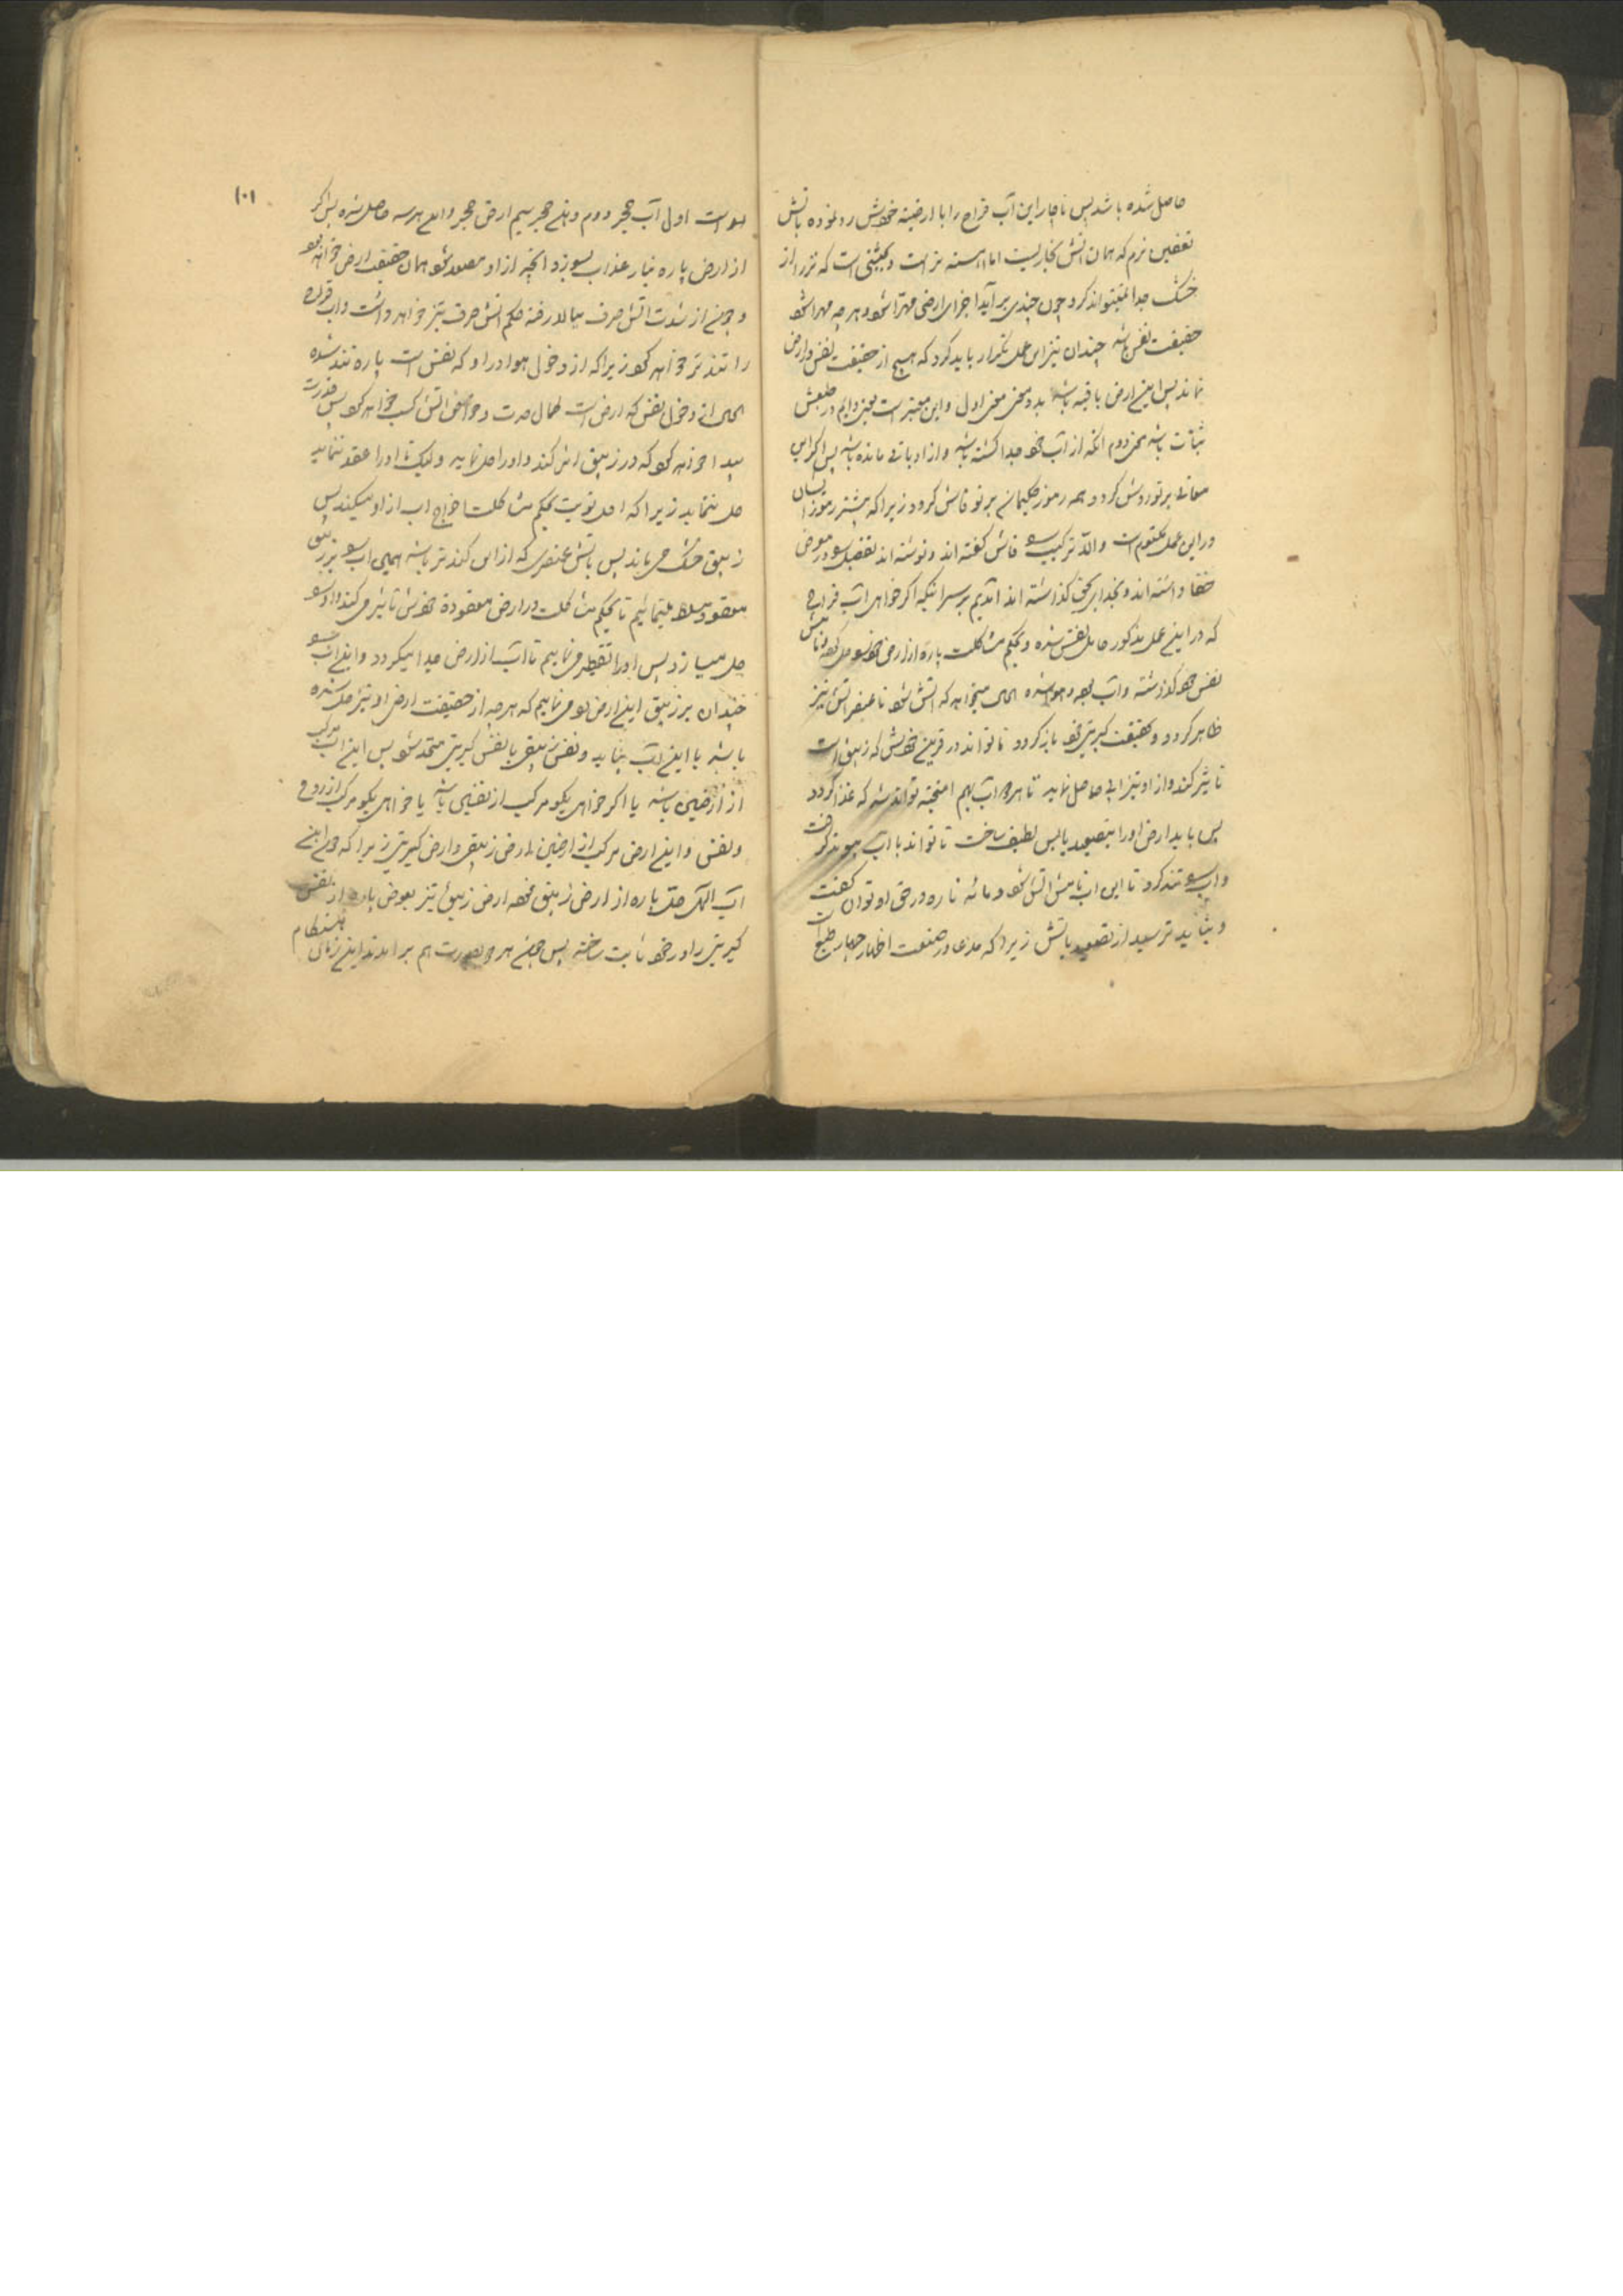 حاصل شده باشد پس ناچار این آب قراح را با ارضیه خویش رد نموده باتش
تعفین نرم که همان اتش بخاریست اما اهسته تر است و بحیثیتی است که تر را از
خشک جدا نمیتواند کرد چون چندی براید اجزای ارضی مهرّا شود و هرچه مهرا شود
حقیقت نفس باشد چندان نیز این عمل تکرار باید کرد که هیچ از حقیقت نفس در ارض
نماند پس این ارض باقیه باشد بدو معنی معنی اول و این معتبر است یعنی دایم در طبعش
ثبات باشد معنی دوم انکه از آب خود جدا کشته باشد و از او باقی مانده باشد پس اکر این
معانی بر تو روشن کردد همه رموز حکیمان بر تو فاش کردد زیرا که بیشتر رموز ایشان
در این عمل مکتوم است والا ترکیب را فاش کفته اند و نوشته اند تفصیل را در معرض
خفا داشته اند و بخدای حق کذاشته اند امدیم بر سر اینکه اکر خواهی آب قراحی
که در این عمل مذکور حامل نفس شده و بحکم مشاکلت پاره از ارض خود را حل کرده و از
نفس خود کذشته و آب بوده و هوا شده الحال میخواهد که اتش شود تا عنصر اتش نیز
ظاهر کردد و حقیقت کبریتی خود بازکردد تا تواند در قرین خویش که زیبق است
تاثیر کند و از او نیز آبی حاصل نماید تا هر دو آب بهم امیخته تواند شد که غذا کردد
پس باید ارض او را بتصعید یابس لطیف ساخت تا تواند با آب پیوند کرفت
و آب را تند کرد تا این آب تا مش اتش شود و مائه ناره در حق او توان کفت
و نباید ترسید از تصعید باتش زیرا که مدعا در صنعت اظهار چهار طبع است
۱۰۱
اول آب حجر دوم دهن حجر سیم ارض حجر و این هر سه حاصل شده پس اکر
از ارض پاره بنار عذاب بسوزد انچه از او مصعد شود همان حقیقت ارض خواهد بود
و چون از شدت اتش صرف ببالا رفته حکم اتش صرف نیز خواهد داشت و آب قراح
را تندتر خواهد کرد زیرا که از دخول هوا در او که نفس است پاره تند شده
الحال از دخول نفس که ارض است کمال حدت و خواص اتش کسب خواهد کرد پس قدرت
پیدا خواهد کرد که در زیبق اثر کند و او را حل نماید و لیکن تا او را عقد ننماید
حل ننماید زیرا که اول نوبت بحکم مشاکلت اخراج آب از او میکند پس
زیبق خشک میماند پس باتش عنصری که از این کندتر باشد همین آب را بر زیبق
معقود مسلط مینمائیم تا بحکم مشاکلت در ارض معقوده خویش تاثیر میکند و او را
حل میسازد پس او را تقطیر می نماییم تا آب از ارض جدا میکردد و این آب را
چندان بر زیبق این ارض رد می نماییم که هرچه از حقیقت ارض او نیز حل شده
باشد با این آب بیاید و نفس زیبقی با نفس کبریتی متحد شود پس این آب مرکب
از ارضین باشد یا اکر خواهی بکو مرکب از نفسین باشد یا خواهی بکو مرکب از روح
و نفس و این ارض مرکب از ارضین ارض زیبقی و ارض کبریتی زیرا که چون این
آب الهی حل پاره از ارض زیبق نموده ارض زیبق نیز بعوض پاره از نفس
کبریتی را در خود ثابت ساخته پس چون هر دو بصورت هم برامدند این زمان هنکام